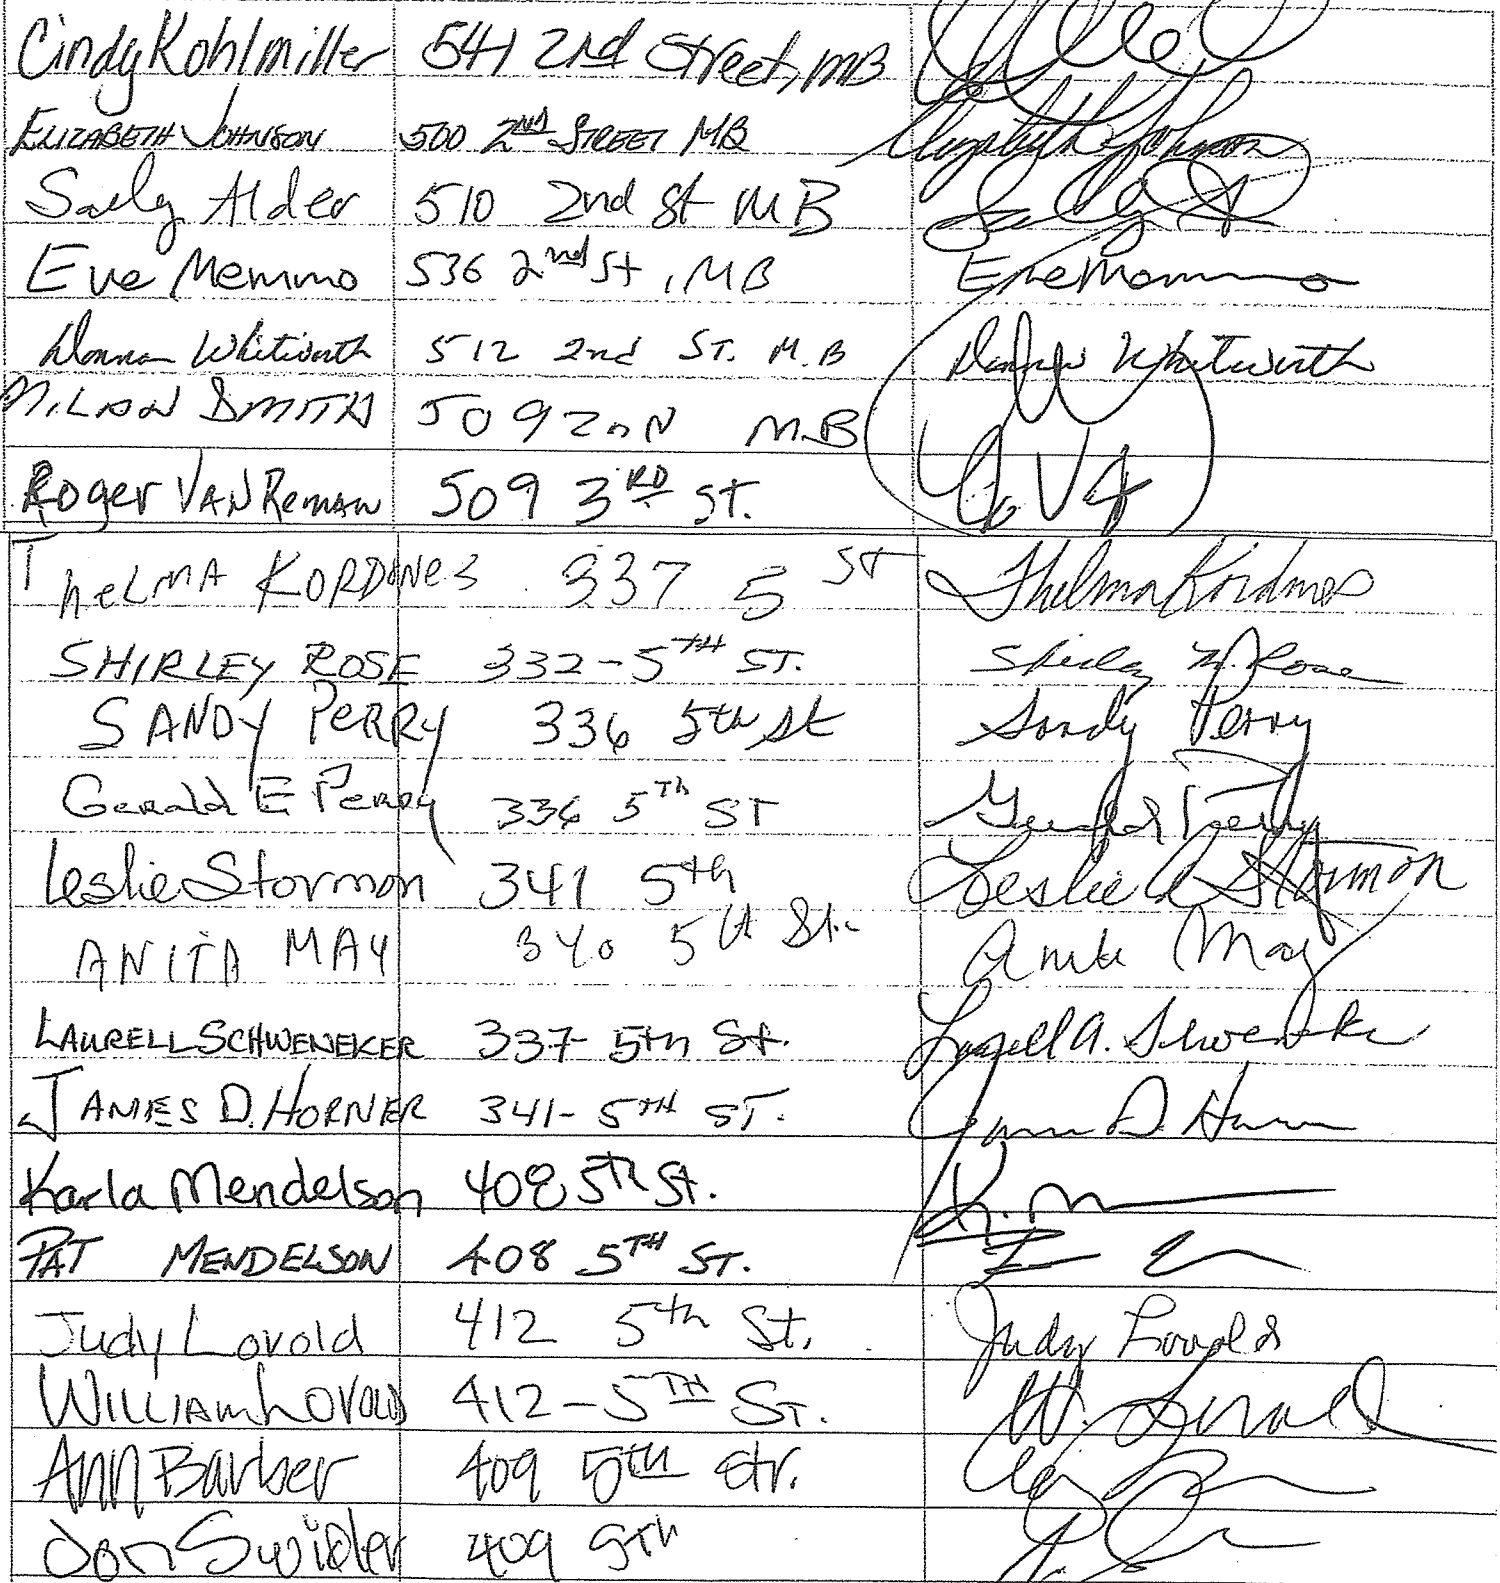 Cindy Kohlmiller 541 2nd Street, MB
ELIZABETH JOHNSON 500 2ND STREET MB Elizabeth Johnson
Sally Alder 510 2nd St MB Sally A
Eve Memmo 536 2nd St, MB Eve Memmo
Donna Whitworth 512 2nd ST. M.B Donna Whitworth
SMITH 509 2nN M.B
Roger VAN Reman 509 3RD ST.
ThELMA KORDONES 337 5 ST Thelma Kordones
SHIRLEY ROSE 332-5TH ST. Shirley M. Rose
SANDY PERRY 336 5th St Sandy Perry
Gerald E Perry 336 5Th ST Gerald Perry
Leslie Stormon 341 5th Leslie A Stormon
ANITA MAY 340 5th St. Anita May
LAURELL SCHWENEKER 337- 5th St. Laurell A. Schweneker
JAMES D. HORNER 341- 5TH ST. James D. Horner
Karla Mendelson 408 5Th St. K. M
PAT MENDELSON 408 5TH ST.
Judy Lovold 412 5th St. Judy Lovold
WILLIAM LOVOLD 412-5TH ST. W. Lovold
Ann Barber 409 5th Str.
Don Swider 409 5th